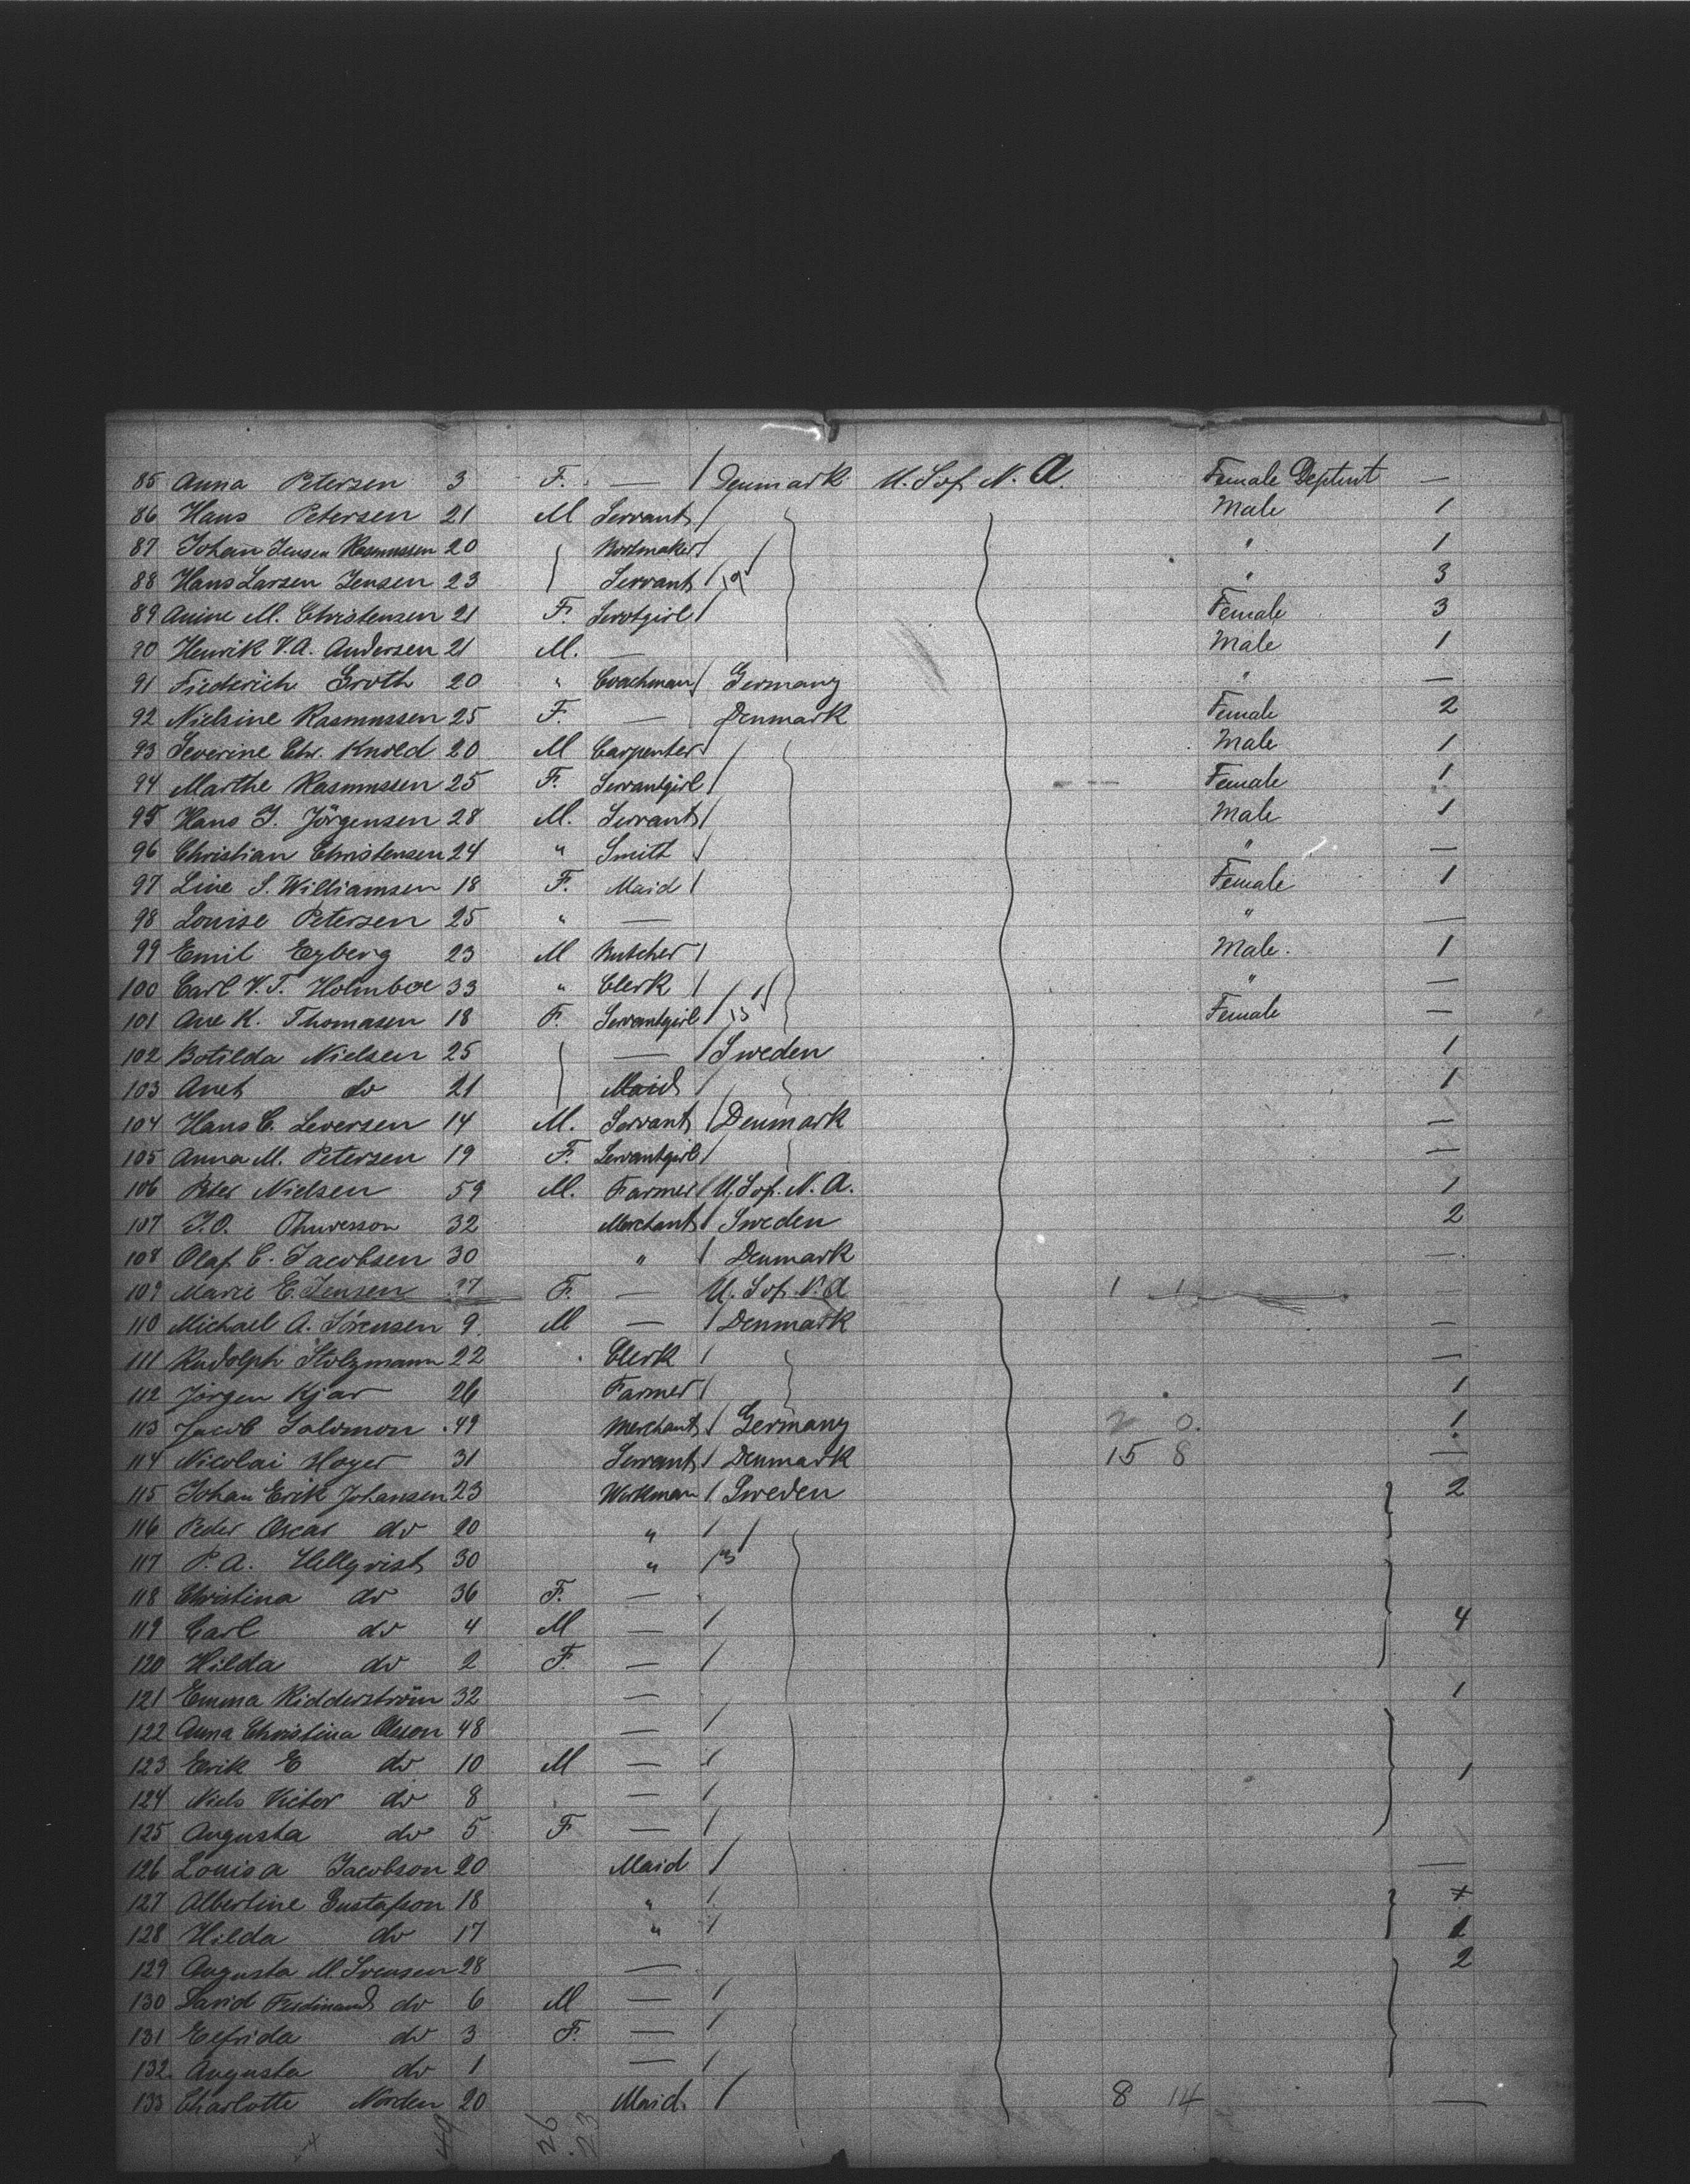 85 Anna Petersen 3 F. — / Denmark U.S. of N. A. Female Deptmt —
86 Hans Petersen 21 M Servant / Male 1
87 Johan Jensen Rasmussen 20 Bootmaker / " 1
88 Hans Larsen Jensen 23 Servant / " 3
89 Anine M. Christensen 21 F. Servtgirl / Female 3
90 Henrik V. A. Andersen 21 M. — Male 1
91 Friederich Groth 20 " Coachman / Germany " —
92 Nielsine Rasmussen 25 F. — Denmark Female 2
93 Severine Chr. Knoed 20 M Carpenter / Male 1
94 Marthe Rasmussen 25 F. Servantgirl / Female 1
95 Hans J. Jörgensen 28 M. Servant / Male 1
96 Christian Christensen 24 " Smith / " —
97 Line S. Williamsen 18 F. Maid / Female 1
98 Louise Petersen 25 " — " —
99 Emil Egberg 23 M Butcher / Male. 1
100 Carl V. T. Holmboe 33 " Clerk / " —
101 Ane K. Thomasen 18 F. Servantgirl / 13 Female —
102 Botilda Nielsen 25 — / Sweden 1
103 Anet do 21 Maid / 1
104 Hans C. Leversen 14 M. Servant / Denmark —
105 Anna M. Petersen 19 F. Servantgirl / —
106 Peter Nielsen 59 M. Farmer / U. S. of. N. A. 1
107 J. O. Thuresson 32 Merchant / Sweden 2
108 Olaf C. Jacobsen 30 " / Denmark —
109 Marie E. Jensen 27 F. — U. S. of N. A 1 1
110 Michael A. Sörensen 9 M — / Denmark —
111 Rudolph Stolzmann 22 Clerk / —
112 Jörgen Kjar 26 Farmer / 1
113 Jacob Salomon 49 Merchant / Germany 2 0. 1
114 Nicolai Hoyer 31 Servant / Denmark 15 8 —
115 Johan Erik Johansen 23 Workman / Sweden 2
116 Peder Oscar do 20 " /
117 P. A. Hellqvist 30 " /
118 Christina do 36 F. —
119 Carl do 4 M — / 4
120 Hilda do 2 F. — /
121 Emma Ridderström 32 — 1
122 Anna Christina Olsson 48 — /
123 Erik E do 10 M — / 1
124 Niels Victor do 8 — /
125 Augusta do 5 F — /
126 Louisa Jacobson 20 Maid / —
127 Albertine Gustafson 18 " /
128 Hilda do 17 " /
129 Augusta M Svensen 28 — 2
130 David Ferdinand do 6 M — /
131 Elfrida do 3 F. — /
132 Augusta do 1 — /
133 Charlotte Norden 20 Maid. / 8 14 —
49 26 23